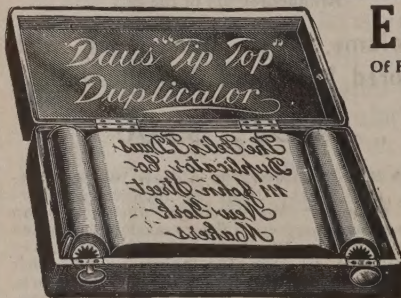 Daus' "Tip Top"
Duplicator
The Felix F. Daus
Duplicator Co.
111 John Street
New York
Makers
E
Of F